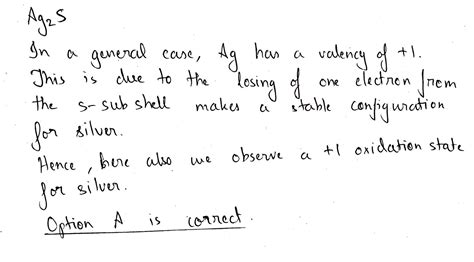 Ag₂S
In a general case, Ag has a valency of +1.
This is due to the losing of one electron from
the s-sub shell makes a stable configuration
for silver.
Hence, here also we observe a +1 oxidation state
for silver.
Option A is correct.